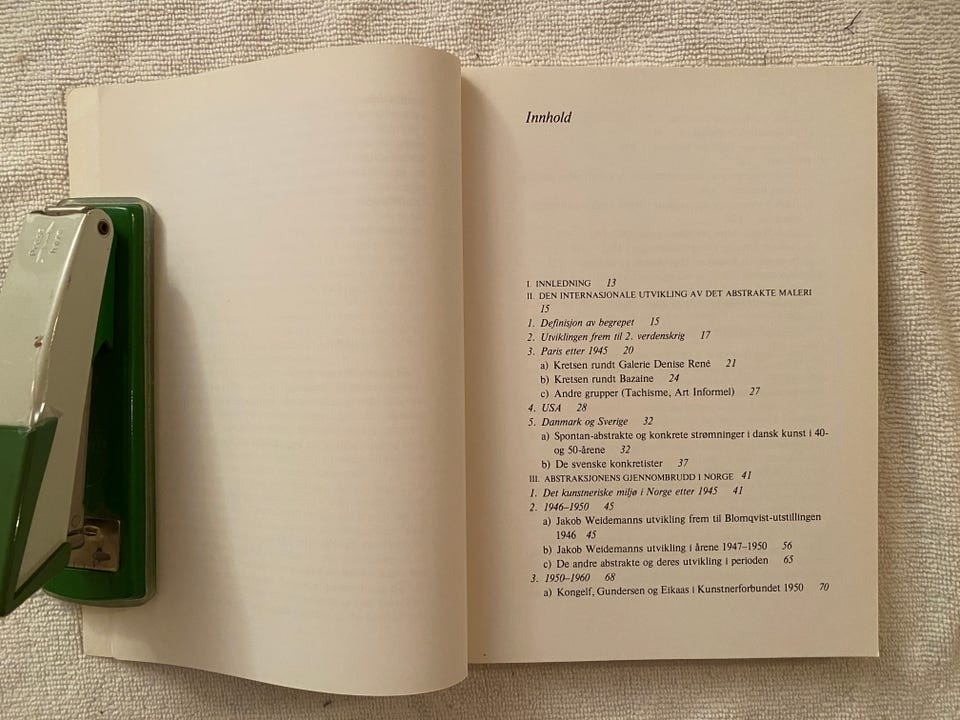 Innhold
I. INNLEDNING 13
II. DEN INTERNASJONALE UTVIKLING AV DET ABSTRAKTE MALERI
15
1. Definisjon av begrepet 15
2. Utviklingen frem til 2. verdenskrig 17
3. Paris etter 1945 20
a) Kretsen rundt Galerie Denise René 21
b) Kretsen rundt Bazaine 24
c) Andre grupper (Tachisme, Art Informel) 27
4. USA 28
5. Danmark og Sverige 32
a) Spontan-abstrakte og konkrete strømninger i dansk kunst i 40-
og 50-årene 32
b) De svenske konkretister 37
III. ABSTRAKSJONENS GJENNOMBRUDD I NORGE 41
1. Det kunstneriske miljø i Norge etter 1945 41
2. 1946–1950 45
a) Jakob Weidemanns utvikling frem til Blomqvist-utstillingen
1946 45
b) Jakob Weidemanns utvikling i årene 1947–1950 56
c) De andre abstrakte og deres utvikling i perioden 65
3. 1950–1960 68
a) Kongelf, Gundersen og Eikaas i Kunstnerforbundet 1950 70